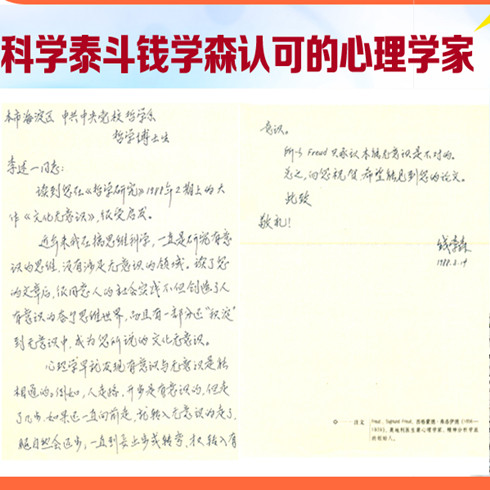 科学泰斗钱学森认可的心理学家
本市海淀区 中共中央党校 哲学部
哲学博士生
李述一同志：
读到您在《哲学研究》1988年2期上的大
作《文化无意识》，很受启发。
近年来我在搞思维科学，一直是研究有意
识的思维，没有涉足无意识的领域。读了您
的文章后，很同意人的社会实践不但创造了人
有意识的各个思维世界，而且有一部分还“积淀”
到无意识中，成为您所说的文化无意识。
心理学早就发现有意识与无意识是能
相通的。例如，人走路，开步是有意识的，但走
了几步，如果还一直向前走，就转入无意识的走了，
腿自然会迈步，一直到要止步或转弯，才又转入有
意识。
所以Freud只承认本能无意识是不对的。
总之，向您祝贺，希望能见到您的论文。
此致
敬礼！
钱学森
1988.2.19
注文 Freud, Sigmund Freud, 西格蒙德·弗洛伊德 (1856—
1939)，奥地利医生兼心理学家，精神分析学派
的创始人。